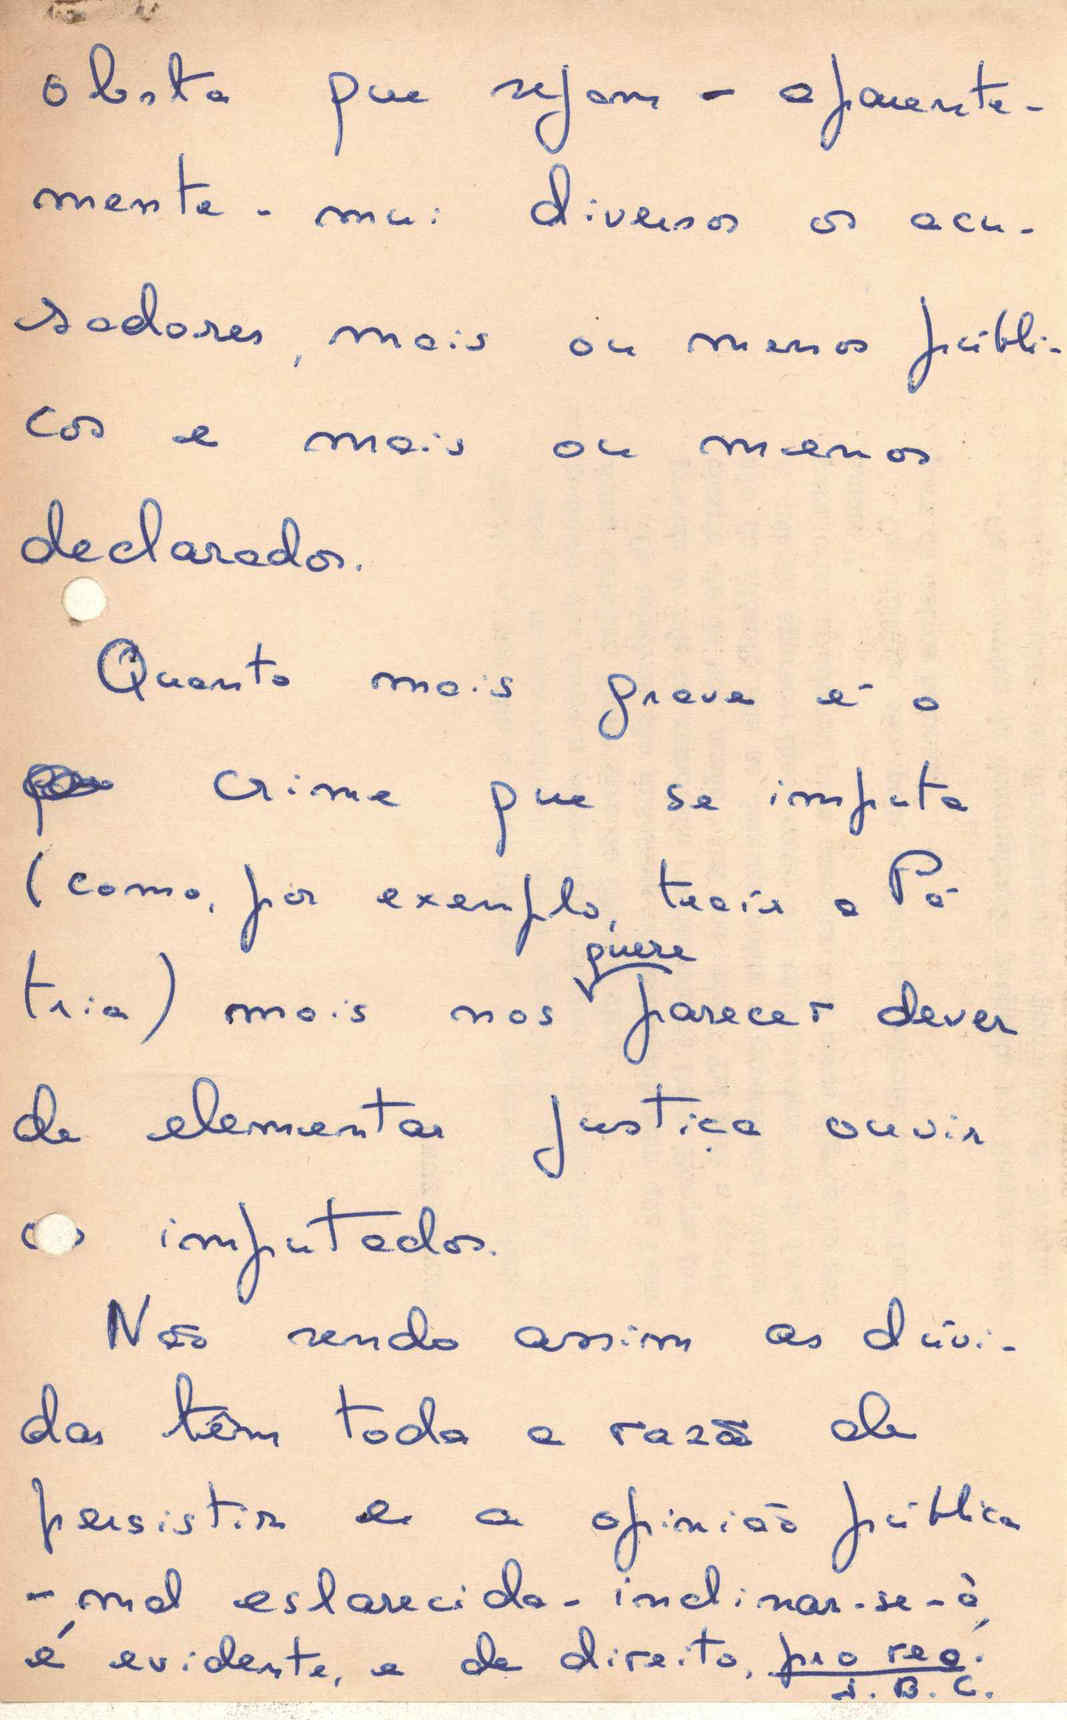 obsta que sejam - aparente-
mente - mui diversos os acu-
sadores, mais ou menos públi-
cos e mais ou menos
declarados.
Quanto mais grave é o
crime que se imputa
(como, por exemplo, trair a Pá-
tria) mais nos quere parecer dever
de elementar justiça ouvir
os imputados.
Não sendo assim as dúvi-
das têm toda a razão de
persistir e a opinião pública
- mal eslarecida - inclinar-se-à,
é evidente, e de direito, pro reo.
J. B. C.